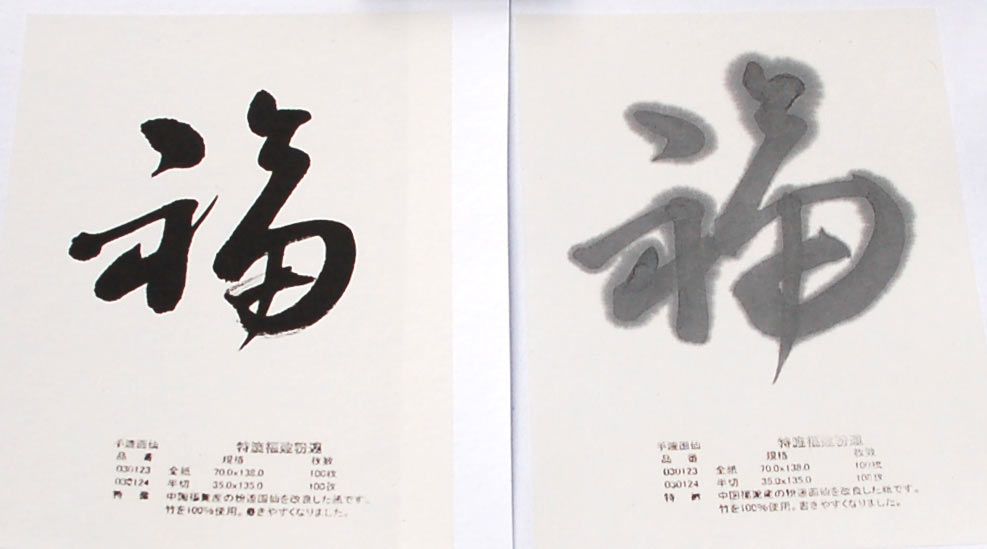 福
手漉画仙 特選福建粉連
品番 規格 枚数
030123 全紙 70.0×138.0 100枚
030124 半切 35.0×135.0 100枚
特徴 中国福建産の粉連画仙を改良した紙です。
竹を100%使用。書きやすくなりました。
福
手漉画仙 特選福建粉連
品番 規格 枚数
030123 全紙 70.0×138.0 100枚
030124 半切 35.0×135.0 100枚
特徴 中国福建産の粉連画仙を改良した紙です。
竹を100%使用。書きやすくなりました。